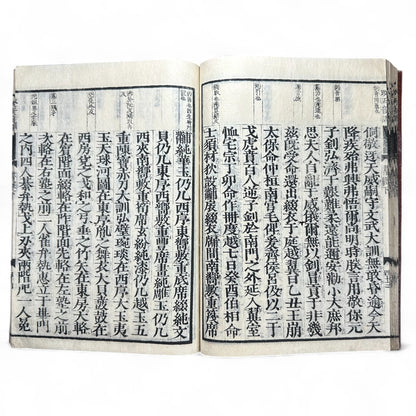 侗敬迓天威嗣守文武大訓無敢昏逾今天
降疾殆弗興弗悟爾尚明時朕言用敬保元
子釗弘濟于艱難柔遠能邇安勸小大庶邦
思夫人自亂于威儀爾無以釗冒貢于非幾
茲既受命還出綴衣于庭越翼日乙丑王崩
太保命仲桓南宮毛俾爰齊侯呂伋以二干
戈虎賁百人逆子釗於南門之外延入翼室
恤宅宗丁卯命作冊度越七日癸酉伯相命
士須材狄設黼扆綴衣牖間南嚮敷重篾席
黼純華玉仍几西序東嚮敷重底席綴純文
貝仍几東序西嚮敷重豐席畫純雕玉仍几
西夾南嚮敷重筍席玄紛純漆仍几越玉五
重陳寶赤刀大訓弘璧琬琰在西序大玉夷
玉天球河圖在東序胤之舞衣大貝鼖鼓在
西房兌之戈和之弓垂之竹矢在東房大輅
在賓階面綴輅在阼階面先輅在左塾之前
次輅在右塾之前二人雀弁執惠立于畢門
之內四人綦弁執戈上刃夾兩階戺一人冕